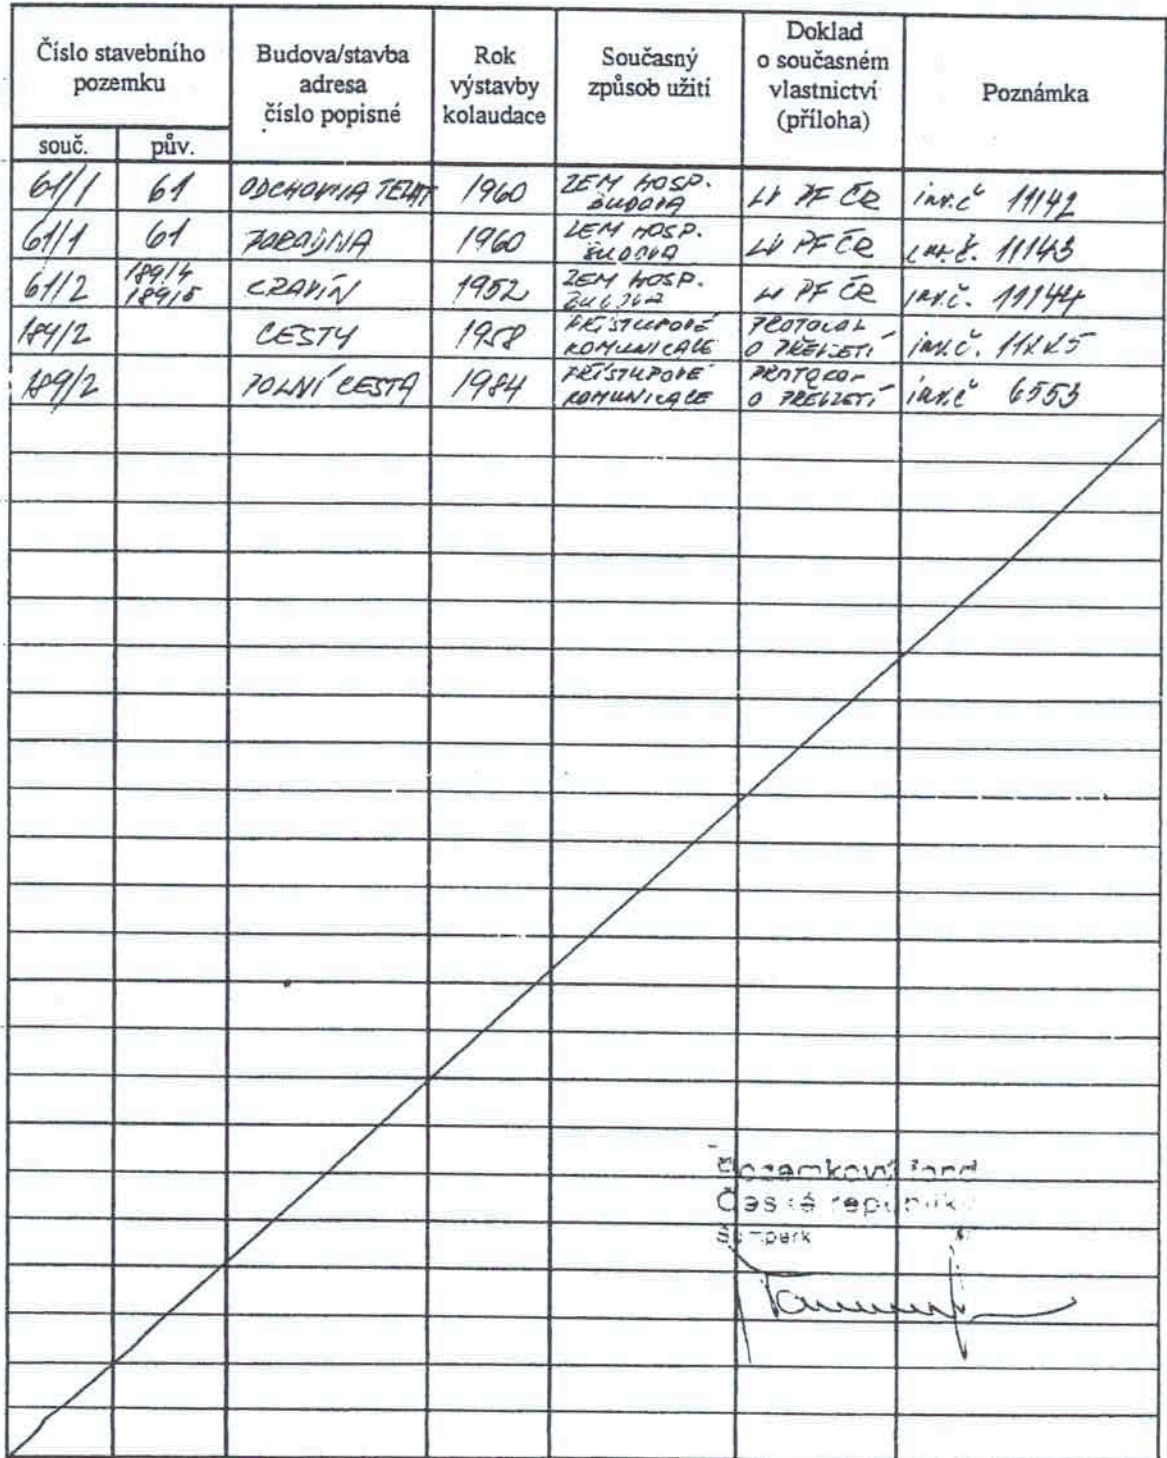 Číslo stavebního pozemku
Budova/stavba adresa číslo popisné
Rok výstavby kolaudace
Současný způsob užití
Doklad o současném vlastnictví (příloha)
Poznámka
souč. pův.
61/1 61 ODCHOVNA TELAT 1960 ZEM HOSP. BUDOVA LV PF ČR inv.č 11142
61/1 61 PORODNA 1960 ZEM HOSP. BUDOVA LV PF ČR inv.č. 11143
61/2 189/4 189/5 KRAVÍN 1952 ZEM HOSP. BUDOVA LV PF ČR inv.č. 11144
184/2 CESTY 1958 PŘÍSTUPOVÉ KOMUNIKACE PROTOKOL O PŘEVZETÍ inv.č.
189/2 POLNÍ CESTA 1984 PŘÍSTUPOVÉ KOMUNIKACE PROTOKOL O PŘEVZETÍ inv.č 6553
Pozemkový fond
České republiky
Šumperk